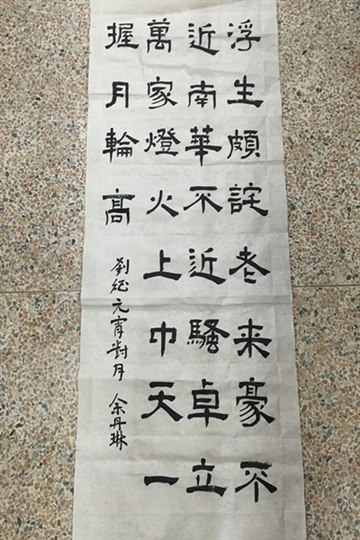 浮生頗詫老来豪不
近南華不近騷卓立
萬家燈火上巾天一
握月輪高
劉征元宵對月 余丹琳